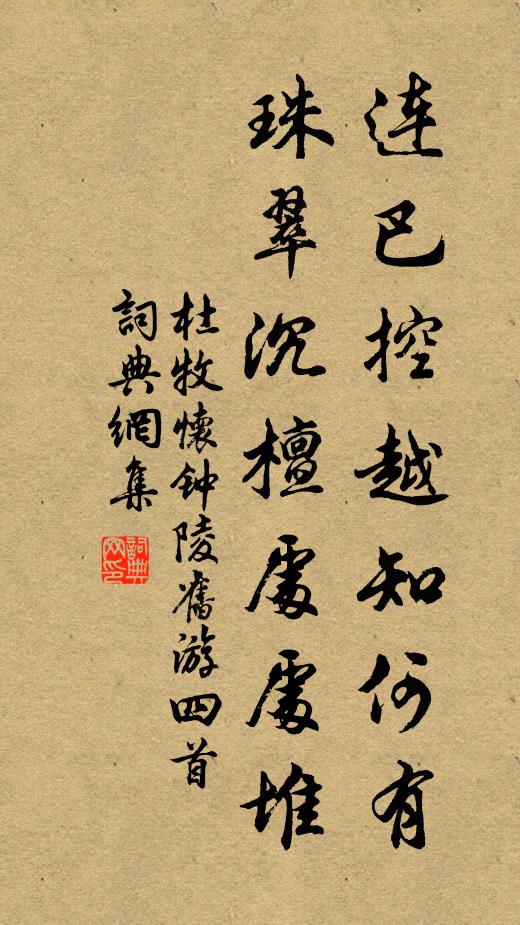 连巴控越知何有
珠翠沉檀處處堆
杜牧懷钟陵舊游四首
詞典網集
詞典网印